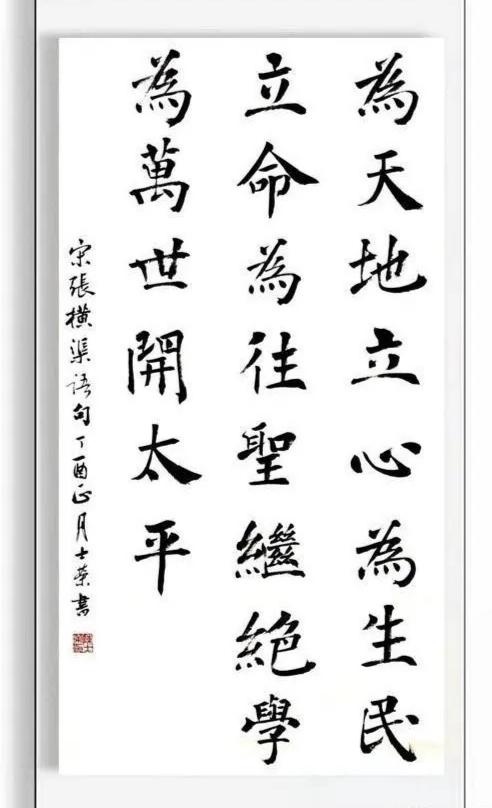 為天地立心為生民
立命為往聖繼絕學
為萬世開太平
宋張橫渠語句丁酉正月士榮書